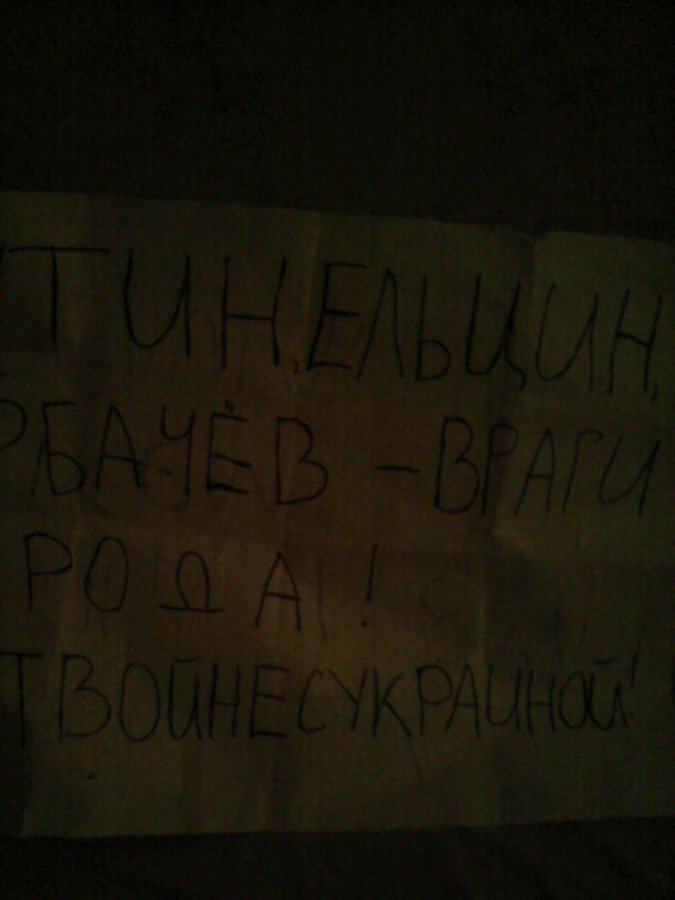 ТИН,ЕЛЬЦИН,
РБАЧЁВ – ВРАГИ
РОДА!
ТВОЙНЕСУКРАИНОЙ!